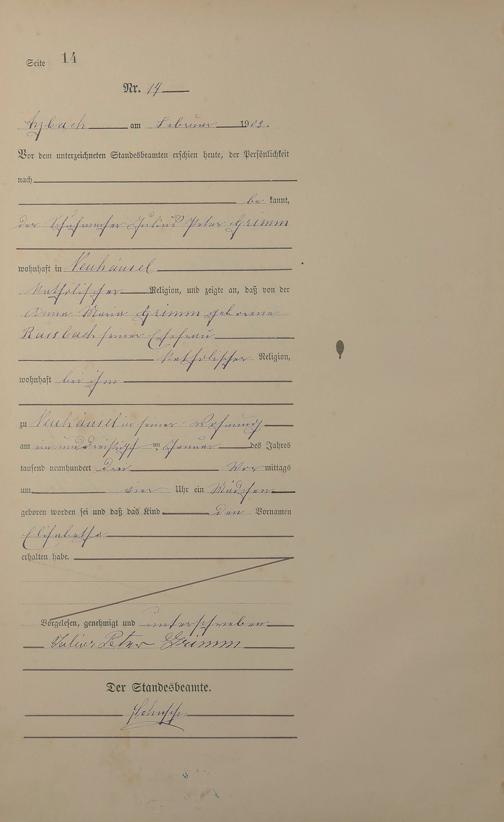 Seite 14
Nr. 14
Arzbach am Februar 1902.
Vor dem unterzeichneten Standesbeamten erschien heute, der Persönlichkeit
nach
be kannt,
der Schuhmacher Julius Peter Grimm
wohnhaft in Neuhäusel
Katholischer Religion, und zeigte an, daß von der
Anna Maria Grimm geborene
seiner Ehefrau
Katholischer Religion,
wohnhaft bei ihm
zu Neuhäusel in seiner Wohnung
am ein und dreißigst en Januar des Jahres
tausend neunhundert Vor mittags
um vier Uhr ein Mädchen
geboren worden sei und daß das Kind den Vornamen
Elisabetha
erhalten habe.
Vorgelesen, genehmigt und unterschrieben
Julius Peter Grimm
Der Standesbeamte.